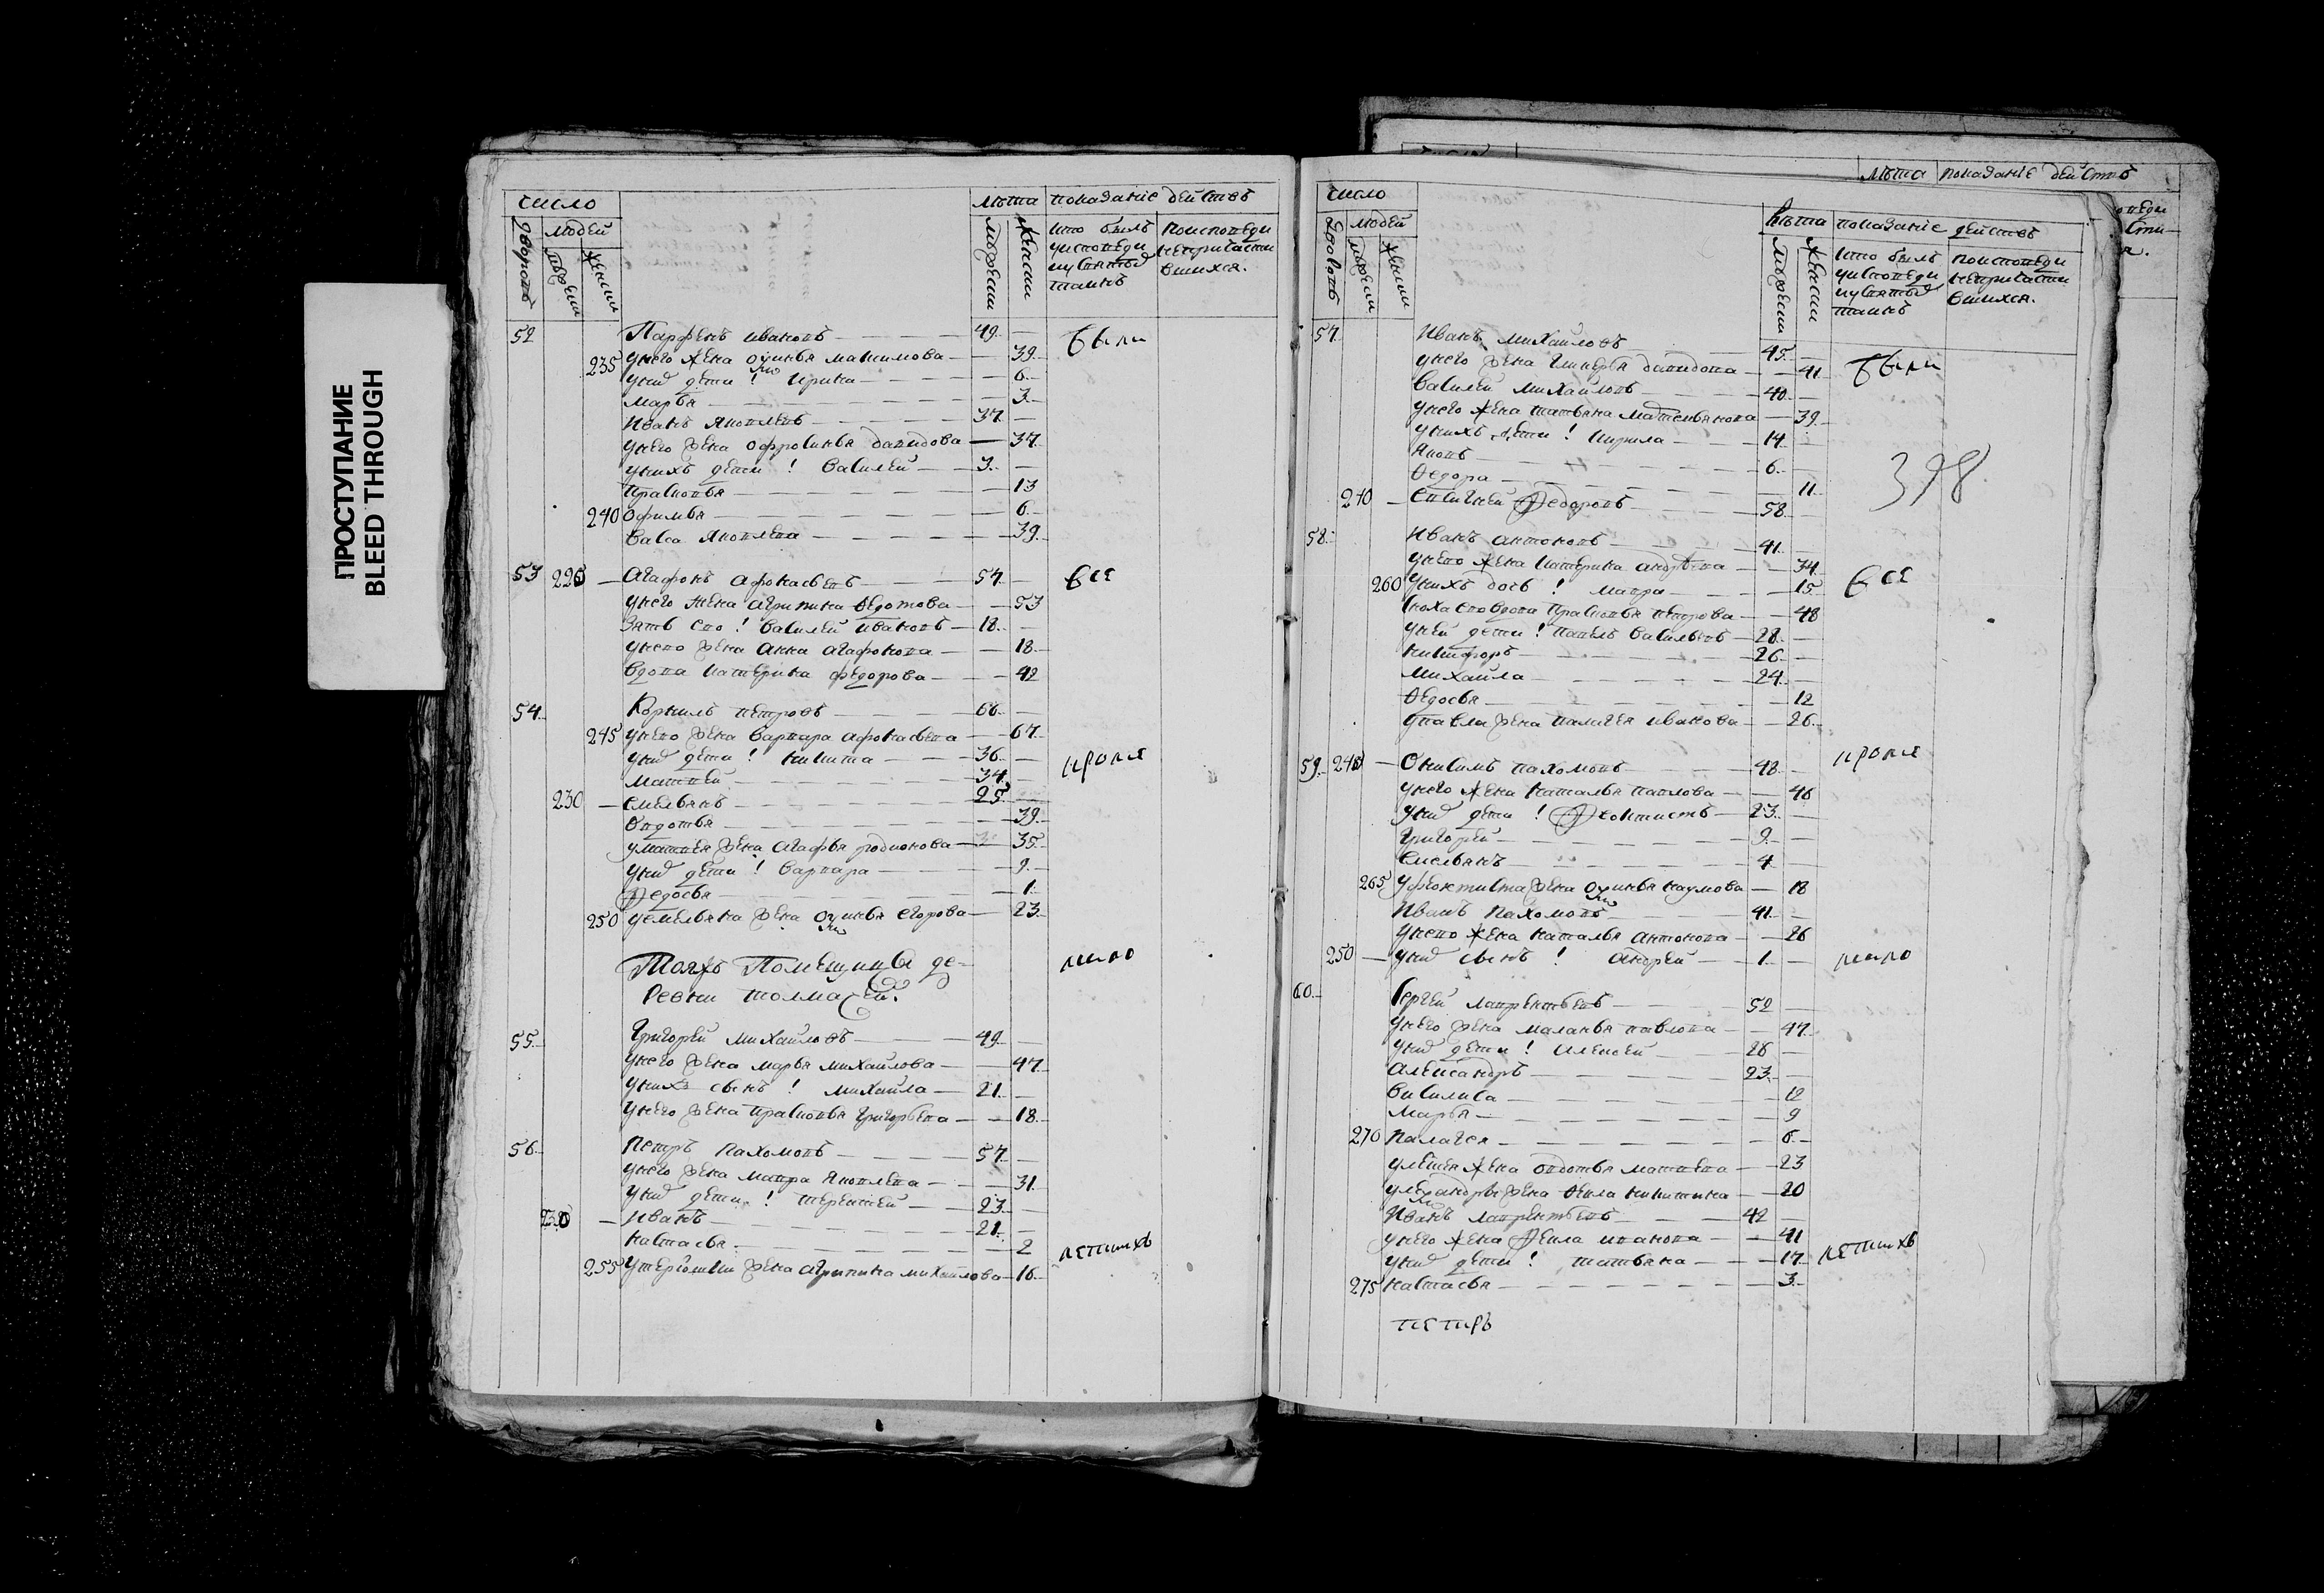 ПРОСТУПАНИЕ
BLEED THROUGH
число лѣта показаніе действъ
дворовъ людей мужески женски кто былъ у исповеди и у святыхъ таинъ по исповеди непричастившихся.
мужески женски
52 Парфенъ Ивановъ 49 были
235 У него жена Офимья Максимова 39
У них дети ! Ирина 6
Марья 3
Иванъ Яковлевъ 37
У него жена Офросинья Давидова 37
У нихъ дети ! Василей 3
Прасковья 13
240 Офимья 6
Васа Яковлева 39
53 225 Агафонъ Афонасьевъ 57 все
У него жена Агрипина Федотова 53
Зять ево ! Василей Ивановъ 18
У него жена Анна Агафонова 18
Вдова Катерина Федорова 42
54 Корнилъ Петровъ 66
245 У него жена Варвара Афонасьева 67
У них дети ! Никита 36 кроме
Матвей 34
230 Емельянъ 25
Овдотья 39
У Матвея жена Агафья Родионова 35
У них дети ! Варвара 9
Федосья 1
250 У Емельяна жена Офимья Егорова 23
Тояжъ Помещицы де=
ревни Толмачей. мало
55 Григорей Михайловъ 49
У него жена Марья Михайлова 47
У нихъ сынъ ! Михайла 21
У него жена Прасковья Григорьева 18
56 Петръ Пахомовъ 57
У него жена Мавра Яковлева 31
У них дети ! Терентей 23
230 Иванъ 21
Настасья 2 летнихъ
255 У Терентия жена Агрипина Михайлова 16
число лѣта показаніе действъ
дворовъ людей мужески женски кто былъ у исповеди и у святыхъ таинъ по исповеди непричастившихся.
мужески женски
57 Иванъ Михайловъ 45
У него жена Гликерья Давидова 41 были
Василей Михайловъ 40
У него жена Татьяна Матвеянова 39
У нихъ дети ! Кирила 14
Яковъ 6
Федора 11
398
240 Евсигней Федоровъ 58
58 Иванъ Антоновъ 41
У него жена Катерина Андрѣева 34
260 У нихъ дочь ! Мавра 15 все
Сноха ево вдова Прасковья Петрова 48
У ней дети ! Павелъ Васильевъ 28
Никифоръ 26
Михайла 24
Федосья 12
У Павла жена Палагея Иванова 26
59 245 Онисимъ Пахомовъ 48 кроме
У него жена Наталья Павлова 46
У них дети ! Феоктистъ 23
Григорей 9
Емельянъ 4
265 У Феоктиста жена Офимья Наумова 18
Иванъ Пахомовъ 41
У него жена Наталья Антонова 26
250 У них сынъ ! Андрей 1 мало
60 Сергей Лаврентьевъ 52
У него жена Маланья Павлова 47
У них дети ! Алексей 26
Александръ 23
Василиса 12
Марья 9
270 Палагея 6
У Алексея жена Овдотья Матвеева 23
У Александры жена Фекла Никитина 20
Иванъ Лаврентьевъ 42
У него жена Фекла Иванова 41
У них дети ! Татьяна 17 летнихъ
275 Настасья 3
Петръ